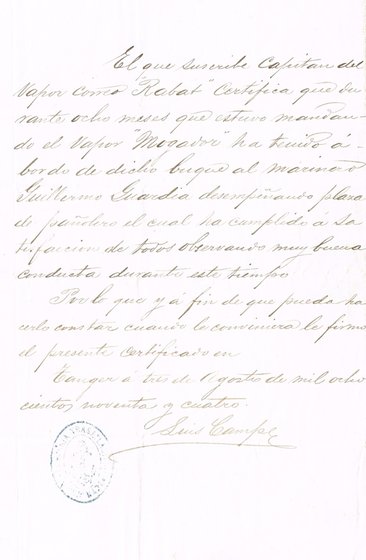 El que suscribe Capitan del
Vapor como "Rabat" Certifica que du-
rante ocho meses que estuvo mandan-
do el Vapor "Mogador" ha tenido á
bordo de dicho buque al marinero
Guillermo Guardia desempeñando plaza
de pañolero el cual ha cumplido á sa
tisfaccion de todos observando muy buena
conducta durante este tiempo
Por lo que y á fin de que pueda ha
cerlo constar cuando le conviniera le firmo
el presente certificado en
Tanger á tres de Agosto de mil ocho
cientos noventa y cuatro.
Luis Campe